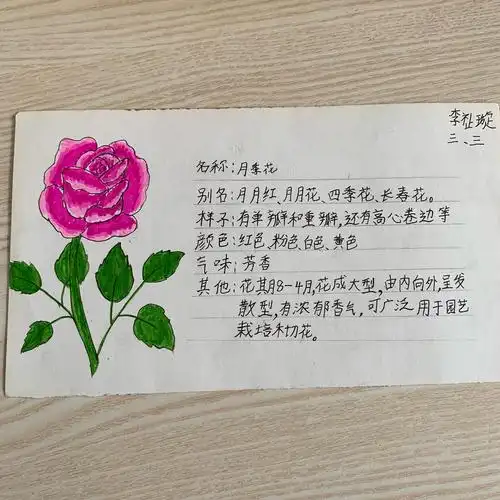 李祉璇
三、三
名称:月季花
别名:月月红、月月花、四季花、长春花。
样子:有单瓣和重瓣,还有高心卷边等
颜色:红色、粉色、白色、黄色
气味:芳香
其他:花其月8-4月,花成大型,由内向外,呈发
散型,有浓郁香气,可广泛用于园艺
栽培和切花。